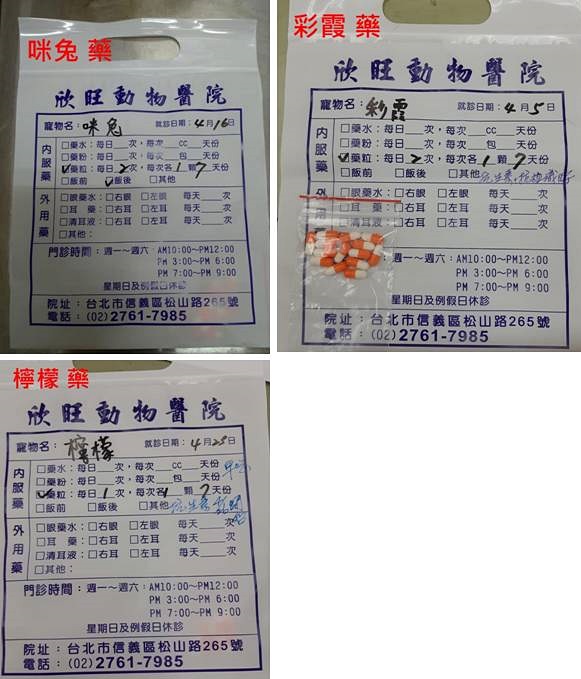 咪兔 藥
欣旺動物醫院
寵物名：咪兔 就診日期：4月16日
內服藥
□藥水：每日__次，每次__cc__天份
□藥粉：每日__次，每次__包__天份
☑藥粒：每日2次，每次各1顆7天份
□飯前 ☑飯後 □其他
外用藥
□眼藥水：□右眼 □左眼 每天__次
□耳 藥：□右耳 □左耳 每天__次
□清耳液：□右耳 □左耳 每天__次
□其他：
門診時間：週一～週六：AM10:00～PM12:00
PM 3:00～PM 6:00
PM 7:00～PM 9:00
星期日及例假日休診
院址：台北市信義區松山路265號
電話：(02)2761-7985
彩霞 藥
欣旺動物醫院
寵物名：彩霞 就診日期：4月5日
內服藥
□藥水：每日__次，每次__cc__天份
□藥粉：每日__次，每次__包__天份
☑藥粒：每日2次，每次各1顆7天份
□飯前 □飯後 □其他 抗生素
外用
□眼藥水：□右眼 □左眼 每天__次
□耳 藥：□右耳 □左耳 每天__次
□清耳液：□右耳 □左耳 每天__次
週一～週六：AM10:00～PM12:00
PM 3:00～PM 6:00
PM 7:00～PM 9:00
星期日及例假日休診
院址：台北市信義區松山路265號
電話：(02)2761-7985
檸檬 藥
欣旺動物醫院
寵物名：檸檬 就診日期：4月25日
內服藥
□藥水：每日__次，每次__cc__天份
□藥粉：每日__次，每次__包__天份
☑藥粒：每日1次，每次各1顆7天份
□飯前 □飯後 □其他 抗生素
外用藥
□眼藥水：□右眼 □左眼 每天__次
□耳 藥：□右耳 □左耳 每天__次
□清耳液：□右耳 □左耳 每天__次
□其他：
門診時間：週一～週六：AM10:00～PM12:00
PM 3:00～PM 6:00
PM 7:00～PM 9:00
星期日及例假日休診
院址：台北市信義區松山路265號
電話：(02)2761-7985